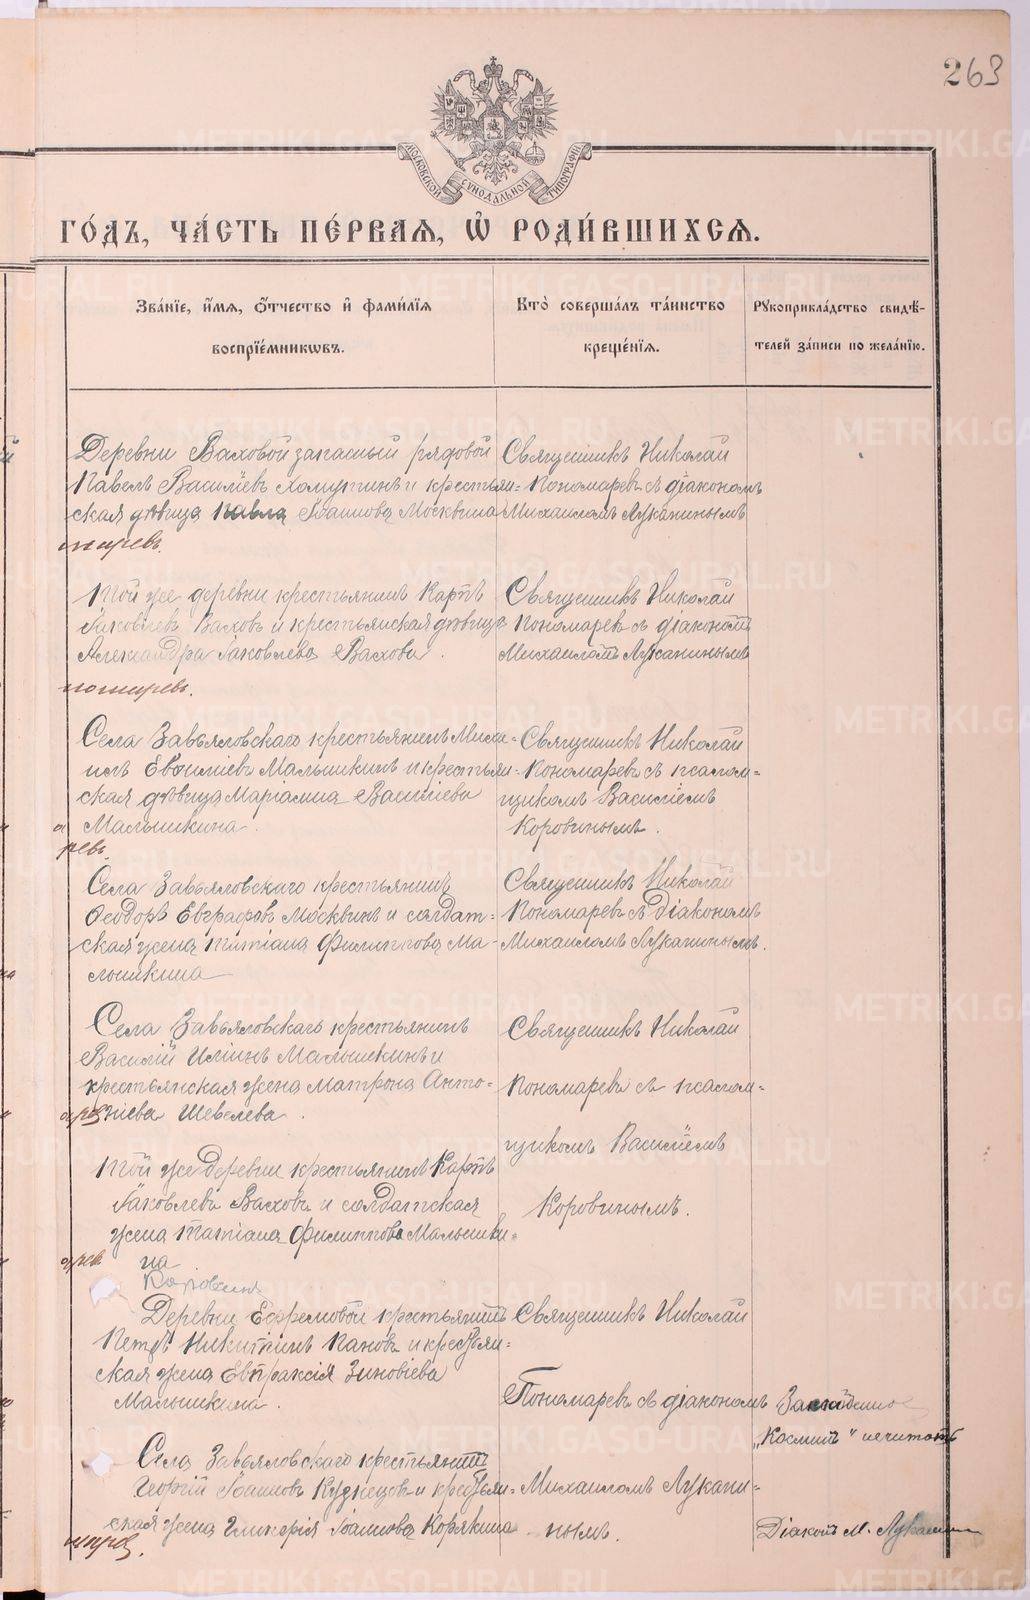 263
МОСКОВСКОЙ СѴНОДАЛЬНОЙ ТИПОГРАФІИ
ГО́ДЪ, ЧА́СТЬ ПЕ́РВАѦ, Ѡ҆ РОДИ́ВШИХСѦ.
Зва́нїе, и҆́мѧ, ѻ҆́тчество и҆ фами́лїѧ
воспрїе́мникѡвъ.
Кто̀ соверша́лъ та́инство
креще́нїѧ.
Рꙋкоприкла́дство свидѣ́-
телей за́писи по жела́нїю.
Деревни Ваховой запасный рядовой
Павелъ Василіевъ Хомутинъ и крестьян=
ская дѣвица Павла Іоаннова Москвина
Священникъ Николай
Пономаревъ съ діакономъ
Михаиломъ Луканинымъ
Той же деревни крестьянинъ Карпъ
Іаковлевъ Ваховъ и крестьянская дѣвица
Александра Іаковлева Вахова.
Священникъ Николай
Пономаревъ съ діакономъ
Михаиломъ Луканинымъ
Села Завьяловскаго крестьянинъ Миха=
илъ Евѳиміевъ Малышкинъ и крестьян=
ская дѣвица Маріамна Василіева
Малышкина.
Священникъ Николай
Пономаревъ съ псалом=
щикомъ Василіемъ
Коровинымъ.
Села Завьяловскаго крестьянинъ
Ѳеодоръ Евграфовъ Москвинъ и солдат=
ская жена Татіана Филиппова Ма-
лышкина
Священникъ Николай
Пономаревъ съ діакономъ
Михаиломъ Луканинымъ.
Села Завьяловскаго крестьянинъ
Василій Иліинъ Малышкинъ и
крестьянская жена Матрона Анто-
ніева Шевелева.
Священникъ Николай
Пономаревъ съ псалом=
щикомъ Василіемъ
Коровинымъ.
Той же деревни крестьянинъ Карпъ
Іаковлевъ Ваховъ и солдатская
жена Татіана Филиппова Малышки=
на
Деревни Ефремовой крестьянинъ
Петръ Никитинъ Пановъ и крестьян=
ская жена Евпраксія Зиновіева
Малышкина.
Священникъ Николай
Пономаревъ съ діакономъ
Михаиломъ Лукани=
нымъ.
Села Завьяловскаго крестьянинъ
Георгій Іоанновъ Кузнецовъ и крестьян=
ская жена Гликерія Іоаннова Корякина
"Космин" не читать
Діаконъ М. Луканинъ
METRIKI.GASO-URAL.RU